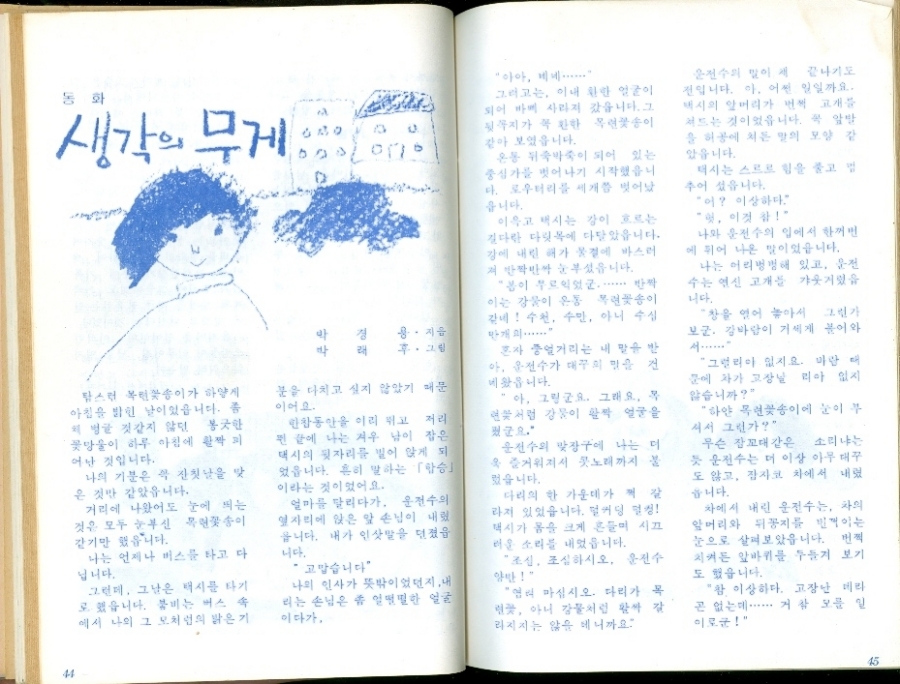 동 화
생각의 무게
박 경 용·지음
박 래 후·그림
탐스런 목련꽃송이가 하얗게
아침을 밝힌 날이었읍니다. 좀
체 벙글 것같지 않던 봉긋한
꽃망울이 하루 아침에 활짝 피
어난 것입니다.
나의 기분은 꼭 잔칫날을 맞
은 것만 같았읍니다.
거리에 나왔어도 눈에 띄는
것은 모두 눈부신 목련꽃송이
같기만 했읍니다.
나는 언제나 버스를 타고 다
닙니다.
그런데, 그날은 택시를 타기
로 했읍니다. 붐비는 버스 속
에서 나의 그 모처럼의 밝은 기
분을 다치고 싶지 않았기 때문
이어요.
한참동안을 이리 뛰고 저리
뛴 끝에 나는 겨우 남이 잡은
택시의 뒷자리를 빌어 앉게 되
었읍니다. 흔히 말하는 「합승」
이라는 것이었어요.
얼마를 달리다가, 운전수의
옆자리에 앉은 앞 손님이 내렸
읍니다. 내가 인삿말을 던졌읍
니다.
" 고맙습니다"
나의 인사가 뜻밖이었던지, 내
리는 손님은 좀 얼떨떨한 얼굴
이다가,
44
"아아, 네네……"
그러고는, 이내 훤한 얼굴이
되어 바삐 사라져 갔읍니다. 그
뒷꼭지가 꼭 환한 목련꽃송이
같아 보였읍니다.
온통 뒤죽박죽이 되어 있는
중심가를 벗어나기 시작했읍니
다. 로우터리를 세개쯤 벗어났
읍니다.
이윽고 택시는 강이 흐르는
길다란 다릿목에 다달았읍니다.
강에 내린 해가 물결에 바스러
져 반짝반짝 눈부셨읍니다.
"봄이 무르익었군.…… 반짝
이는 강물이 온통 목련꽃송이
같네! 수천, 수만, 아니 수십
만개의……"
혼자 중얼거리는 내 말을 받
아, 운전수가 대꾸의 말을 건
네왔읍니다.
" 아, 그렇군요. 그래요, 목
련꽃처럼 강물이 활짝 얼굴을
폈군요."
운전수의 맞장구에 나는 더
욱 즐거워져서 콧노래까지 불
렀읍니다.
다리의 한 가운데가 쩍 갈
라져 있었읍니다. 덜커덩 덜컹!
택시가 몸을 크게 흔들며 시끄
러운 소리를 내었읍니다.
"조심, 조심하시오, 운전수
양반!"
"염려 마십시오. 다리가 목
련꽃, 아니 강물처럼 활짝 갈
라지지는 않을 테니까요."
운전수의 말이 채 끝나기도
전입니다. 아, 어쩐 일일까요.
택시의 앞머리가 번쩍 고개를
쳐드는 것이었읍니다. 꼭 앞발
을 허공에 쳐든 말의 모양 같
았읍니다.
택시는 스르르 힘을 풀고 멈
추어 섰읍니다.
"어? 이상하다."
"헛, 이것 참!"
나와 운전수의 입에서 한꺼번
에 튀어 나온 말이었읍니다.
나는 어리벙벙해 있고, 운전
수는 연신 고개를 갸웃거렸읍
니다.
"창을 열어 놓아서 그런가
보군. 강바람이 거세게 불어와
서……"
"그럴리야 없지요. 바람 때
문에 차가 고장날 리야 없지
않습니까?"
"하얀 목련꽃송이에 눈이 부
셔서 그런가?"
무슨 잠꼬대같은 소리냐는
듯 운전수는 더 이상 아무 대꾸
도 않고, 잠자코 차에서 내렸
읍니다.
차에서 내린 운전수는, 차의
앞머리와 뒤꽁지를 번갯이는
눈으로 살펴보았읍니다. 번쩍
치켜든 앞바퀴를 두들겨 보기
도 했읍니다.
"참 이상하다. 고장난 데라
곤 없는데…… 거 참 모를 일
이로군!"
45